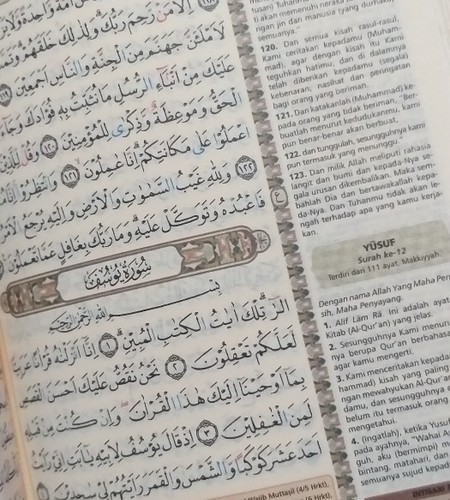 إِلَّا مَنْ رَّحِمَ رَبُّكَ ۗ وَلِذٰلِكَ خَلَقَهُمْ ۗ
لَاَمْلَـَٔنَّ جَهَنَّمَ مِنَ الْجِنَّةِ وَالنَّاسِ اَجْمَعِيْنَ
عَلَيْكَ مِنْ اَنْۢبَاۤءِ الرُّسُلِ مَا نُثَبِّتُ بِهٖ فُؤَادَكَ وَجَاۤءَ
الْحَقُّ وَمَوْعِظَةٌ وَّذِكْرٰى لِلْمُؤْمِنِيْنَ ١٢٠ وَقُلْ لِّلَّذِيْنَ
اعْمَلُوْا عَلٰى مَكَانَتِكُمْ ۗ اِنَّا عٰمِلُوْنَ ١٢١ وَانْتَظِرُوْا اِنَّا
١٢٢ وَلِلّٰهِ غَيْبُ السَّمٰوٰتِ وَالْاَرْضِ وَاِلَيْهِ يُرْجَعُ الْاَمْرُ
فَاعْبُدْهُ وَتَوَكَّلْ عَلَيْهِ ۗ وَمَا رَبُّكَ بِغَافِلٍ عَمَّا تَعْمَلُوْنَ
سُوْرَةُ يُوْسُفَ
بِسْمِ اللّٰهِ الرَّحْمٰنِ الرَّحِيْمِ
الۤرٰ ۗ تِلْكَ اٰيٰتُ الْكِتٰبِ الْمُبِيْنِ ١ اِنَّآ اَنْزَلْنٰهُ قُرْاٰنًا عَرَبِيًّا
لَّعَلَّكُمْ تَعْقِلُوْنَ ٢ نَحْنُ نَقُصُّ عَلَيْكَ اَحْسَنَ الْقَصَصِ
بِمَآ اَوْحَيْنَآ اِلَيْكَ هٰذَا الْقُرْاٰنَ ۖ وَاِنْ كُنْتَ مِنْ قَبْلِهٖ
لَمِنَ الْغٰفِلِيْنَ ٣ اِذْ قَالَ يُوْسُفُ لِاَبِيْهِ يٰٓاَبَتِ اِنِّيْ رَاَيْتُ
اَحَدَ عَشَرَ كَوْكَبًا وَّالشَّمْسَ وَالْقَمَرَ رَاَيْتُهُمْ لِيْ سٰجِدِيْنَ
Wajib Muttaṣil (4/5 Hrkt),
tusan) Tuhanmu
ti akan memenuhi neraka
ngan jin dan manusia (yang durhaka)
semuanya."
120. Dan semua kisah rasul-rasul,
Kami ceritakan kepadamu (Muham-
mad), agar dengan kisah itu Kami
teguhkan hatimu; dan di dalamnya
telah diberikan kepadamu (segala)
kebenaran, nasihat dan peringatan
bagi orang yang beriman.
121. Dan katakanlah (Muhammad) ke-
pada orang yang tidak beriman, "Ber-
buatlah menurut kedudukanmu, kami
pun benar-benar akan berbuat,
122. dan tunggulah, sesungguhnya kami
pun termasuk yang menunggu."
123. Dan milik Allah meliputi rahasia
langit dan bumi dan kepada-Nya se-
gala urusan dikembalikan. Maka sem-
bahlah Dia dan bertawakallah kepa-
da-Nya. Dan Tuhanmu tidak akan le-
ngah terhadap apa yang kamu kerja-
kan.
YŪSUF
Surah ke-12
Terdiri dari 111 ayat. Makkiyyah.
Dengan nama Allah Yang Maha Penga-
sih, Maha Penyayang.
1. Alif Lām Rā. Ini adalah ayat-
Kitab (Al-Qur'an) yang jelas.
2. Sesungguhnya Kami menurun
nya berupa Qur'an berbahasa
agar kamu mengerti.
3. Kami menceritakan kepada
hammad) kisah yang paling
ngan mewahyukan Al-Qur'
damu, dan sesungguhnya
belum itu termasuk orang
mengetahui.
4. (Ingatlah), ketika Yusuf
pada ayahnya, "Wahai Ay
guh, aku (bermimpi) me
bintang, matahari, dan
semuanya sujud kepad